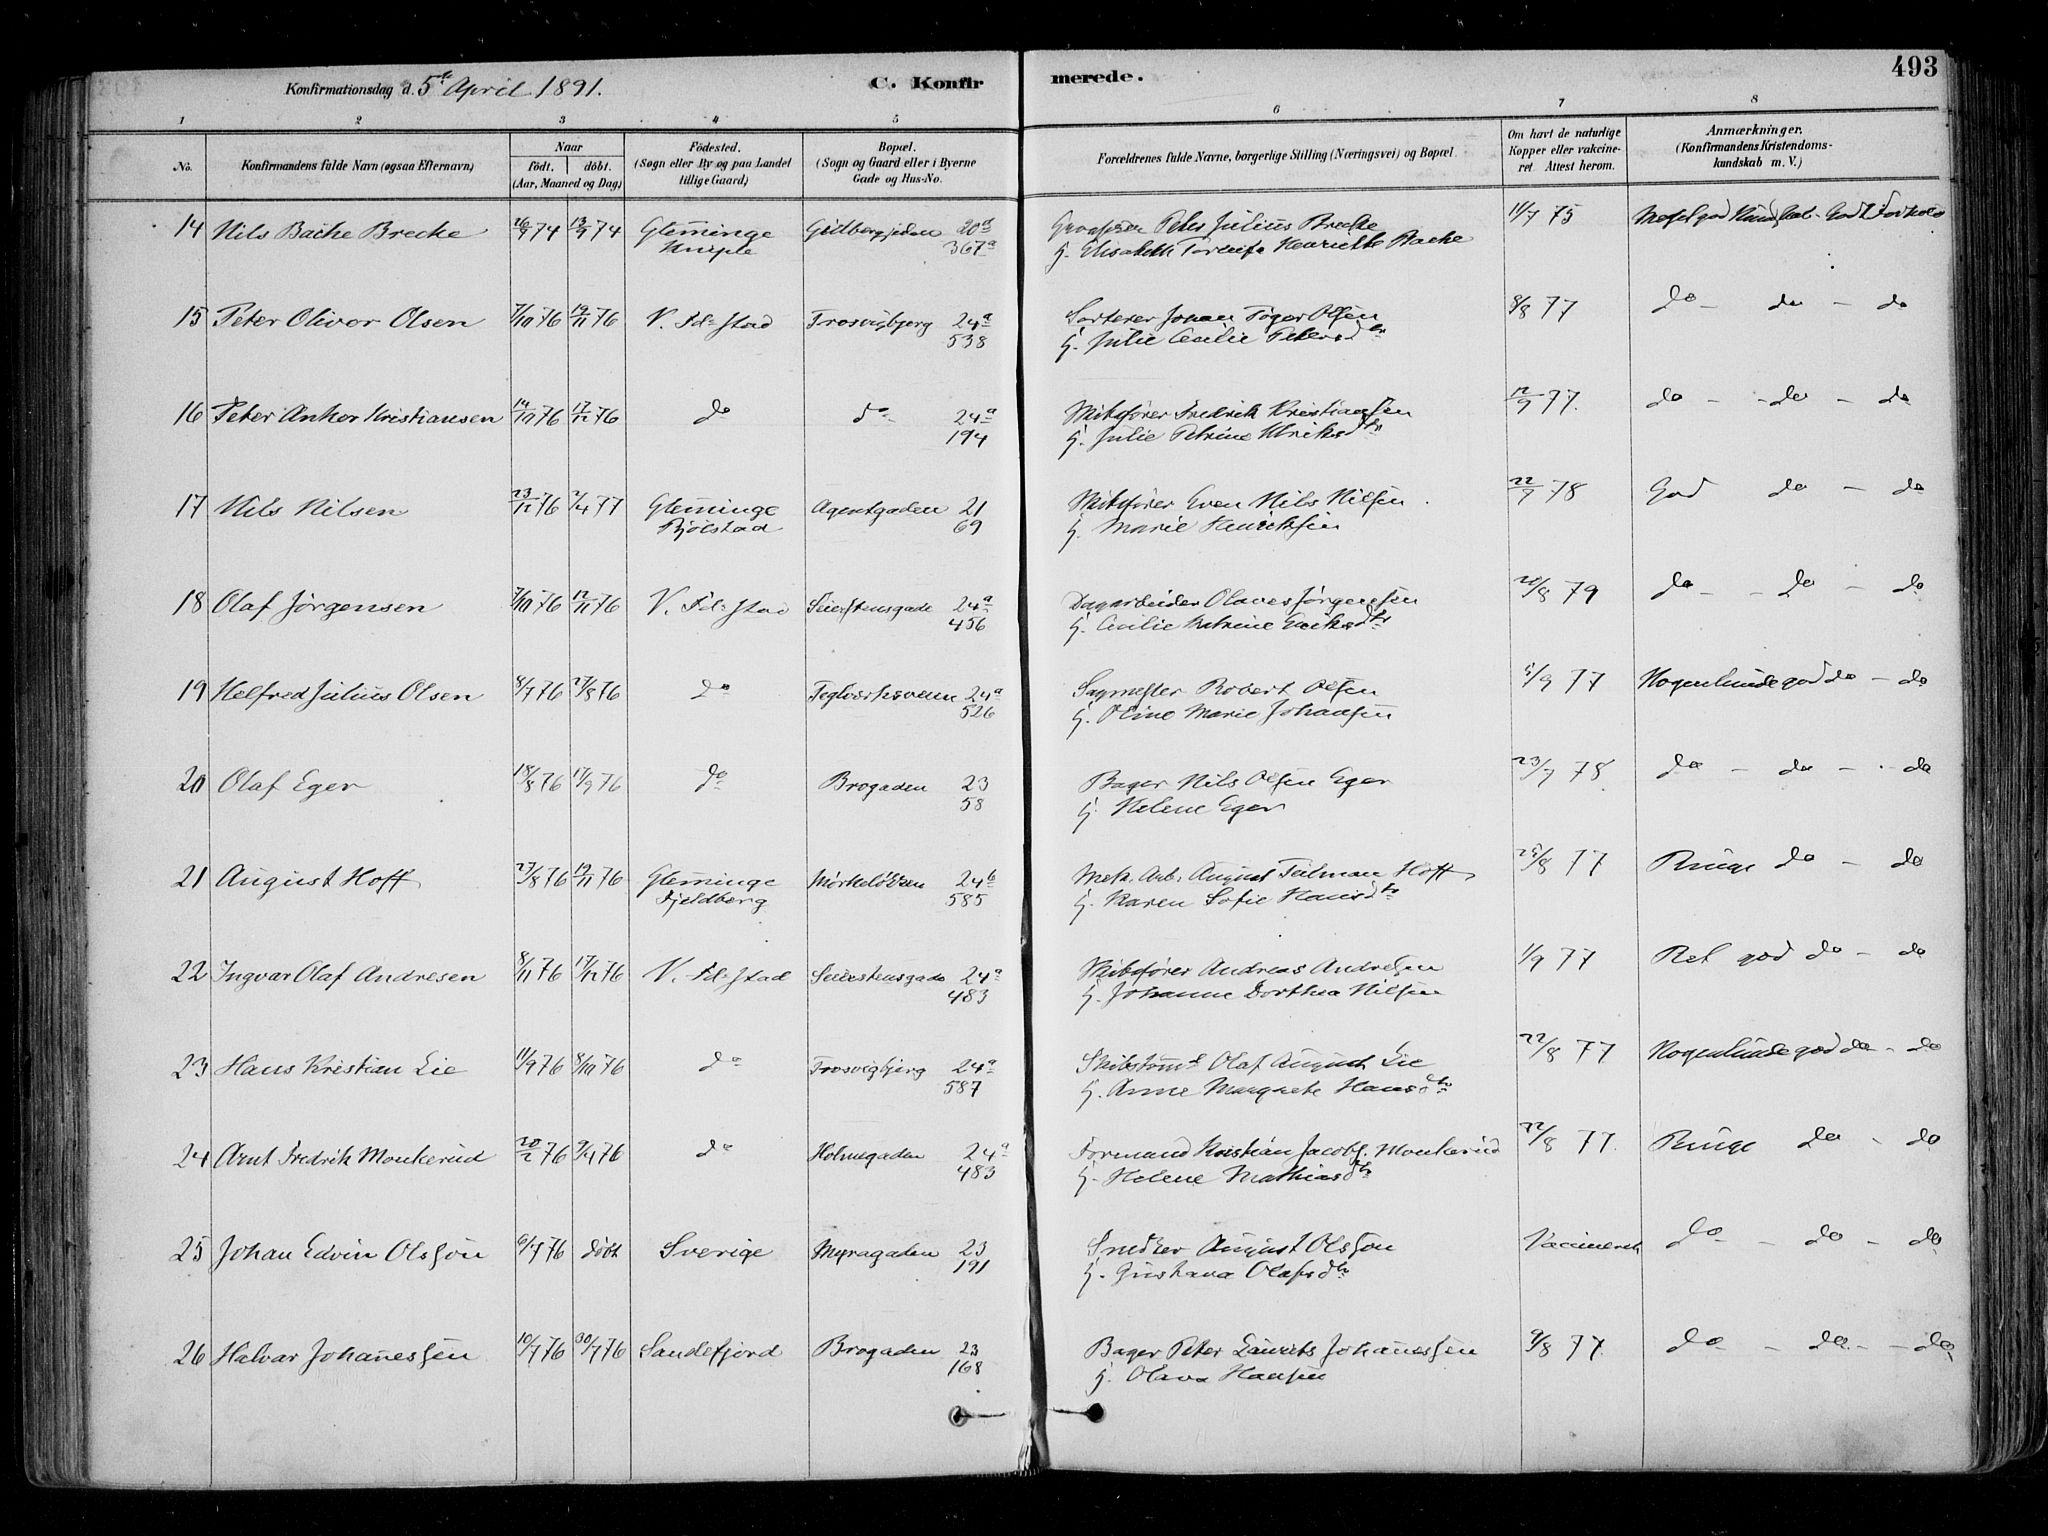 Konfirmationsdag d. 5te April 1891.
C. Konfirmerede.
493
1 2 3 4 5 6 7 8
No.
Konfirmandens fulde Navn (ogsaa Efternavn)
Naar
Födt. döbt.
(Aar, Maaned og Dag)
Födested.
(Sogn eller By og paa Landet
tillige Gaard)
Bopæl.
(Sogn og Gaard eller i Byerne
Gade og Hus-No.
Forældrenes fulde Navne, borgerlige Stilling (Næringsvei) og Bopæl.
Om havt de naturlige
Kopper eller vakcine-
ret Attest herom.
Anmærkninger.
(Konfirmandens Kristendoms-
kundskab m. V.)
14 Nils Bache Brecke 26/9 74 13/9 74 Glemminge 20d Peter Julius Brecke 11/7 75 Meget god Kundskab - God Forhold
367a G. Elisabeth Henriette Bache
15 Peter Olivor Olsen 7/10 76 19/11 76 V. Fd-stad Trosvigbjerg 24a Sorterer Johan Olsen 8/8 77 do - do - do
538 G. Julie Cecilie Petersdtr
16 Peter Anker Kristiansen 14/10 76 17/12 76 do do 24a Skibsfører Fredrik Kristiansen 12/9 77. do - do - do
194 G. Julie Petrine Ulriksdtr
17 Nils Nilsen 23/12 76 2/4 77 Glemminge Agentgaden 21 Skibsfører Even Nils Nilsen 22/9 78 God do - do
Bjölstad 69 G. Marie Henriksen
18 Olaf Jörgensen 7/10 76 12/11 76 V. Fd-stad Seierstensgade 24a Dagarbeider Olaves Jörgensen 20/8 79 do - do - do
456 G. Cecilie Katrine
19 Helfred Julius Olsen 8/7 76 27/8 76 do Teglverksveien 24a Sagmester Robert Olsen 5/9 77 Nogenlunde god do - do
526 G. Oline Marie Johansen
20 Olaf Eger 18/8 76 17/9 76 do Brogaden 23 Bager Nils Olsen Eger 23/7 78 do - do - do
58 G. Helene Eger
21 August Hoff 27/8 76 19/11 76 Glemminge 24b Mek. Arb. August Tilman Hoff 25/8 77 Ringe do - do
Fjeldberg 585 G. Karen Sofie Hansdtr
22 Ingvar Olaf Andresen 8/11 76 17/12 76 V. Fd-stad Seierstensgade 24a Skibsfører Andreas Andresen 1/9 77 Ret god do - do
483 G. Johanne Dorthea Nilsen
23 Hans Kristian Lie 11/9 76 8/10 76 do Trosvigbjerg 24a Skibstømm Olaf August Lie 22/8 77 Nogenlunde god do - do
587 G. Anne Margrete Hansdtr
24 Arnt Fredrik Monkerud 20/2 76 9/4 76 do Holmegaden 24a Formand Kristian Jacobs. Monkerud 22/8 77. Ringe do - do
483 G. Helene Mathiasdtr
25 Johan Edvin Olsson 6/7 76 döbt Sverige Myragaden 23 Snedker August Olsson Vaccineret do - do - do
191 G. Gustava Olafsdtr
26 Halvar Johannessen 10/7 76 30/7 76 Sandefjord Brogaden 23 Bager Peter Laurits Johannessen 9/8 77. do - do - do
168 G. Olava Hansen